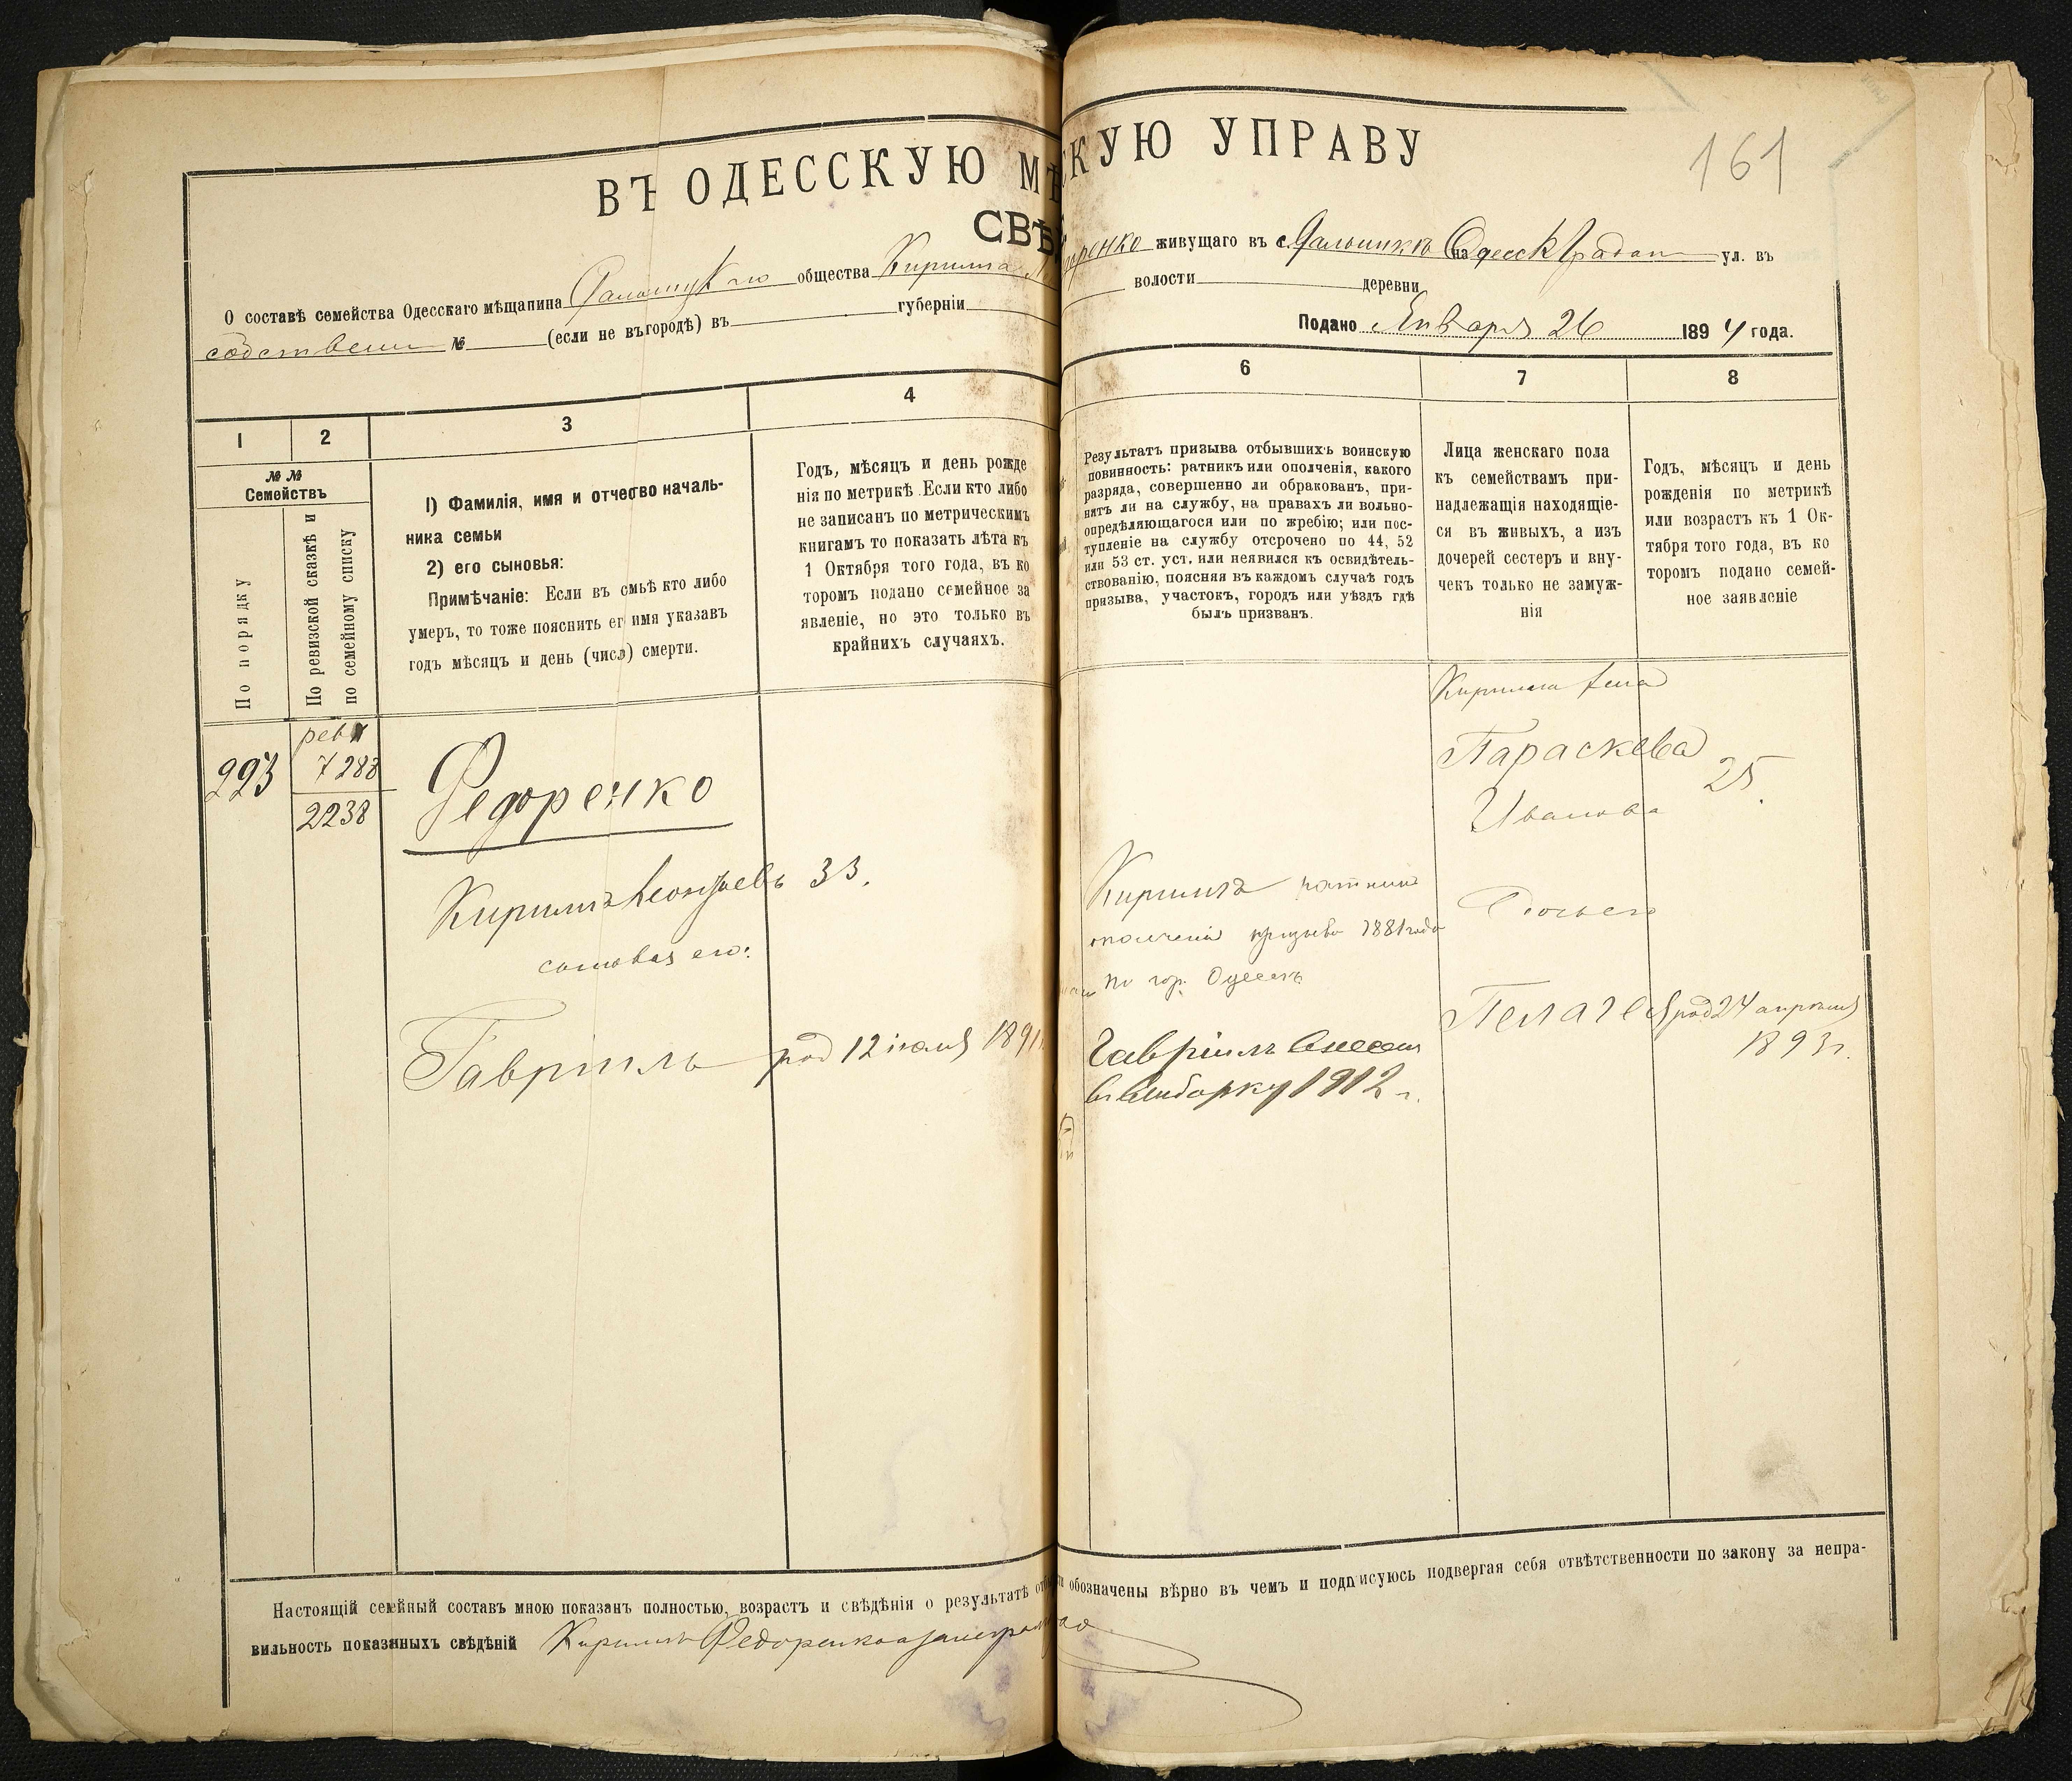 161
ВЪ ОДЕССКУЮ МѢ
СКУЮ УПРАВУ
СВѢ
О составѣ семейства Одесскаго мѣщанина общества Кирилла
оренко живущаго въ с. Дальникъ на Одесск Градон ул. въ
собствен № (если не въ городѣ) въ губерніи
волости деревни
Подано Января 26 1894 года.
1 2 3 4
6 7 8
№ №
Семействъ
По порядку
По ревизской сказкѣ и
по семейному списку
1) Фамилія, имя и отчество началь-
ника семьи
2) его сыновья:
Примѣчаніе: Если въ смьѣ кто либо
умеръ, то тоже пояснить ег имя указавъ
годъ мѣсяцъ и день (число) смерти.
Годъ, мѣсяцъ и день рожде
нія по метрикѣ. Если кто либо
не записанъ по метрическимъ
книгамъ то показать лѣта къ
1 Октября того года, въ ко
торомъ подано семейное за
явленіе, но это только въ
крайнихъ случаяхъ.
Результатъ призыва отбывшихъ воинскую
повинность: ратникъ или ополченія, какого
разряда, совершенно ли обракованъ, при-
нятъ ли на службу, на правахъ ли вольно-
опредѣляющагося или по жребію; или пос-
тупленіе на службу отсрочено по 44, 52
или 53 ст. уст. или неявился къ освидѣтель-
ствованію, поясняя въ каждомъ случаѣ годъ
призыва, участокъ, городъ или уѣздъ гдѣ
былъ призванъ.
Лица женскаго пола
къ семействамъ при-
надлежащія находящіе-
ся въ живыхъ, а изъ
дочерей сестеръ и вну-
чекъ только не замуж-
нія
Годъ, мѣсяцъ и день
рожденія по метрикѣ
или возрастъ къ 1 Ок-
тября того года, въ ко
торомъ подано семей-
ное заявленіе
223
7288
2238
Федоренко
Кириллъ Леонтьевъ 33.
сыновья его:
Гавріилъ род 12 іюля 1891
Кириллъ ратникъ
ополченія призыва 1881 года
по гор. Одессѣ
Гавріилъ внесенъ
въ выборку 1912 г.
Кирилла жена
Параскева
Иванова
25.
Пелагея род 24 апрѣля
1893 г.
Настоящій семейный составъ мною показанъ полностью, возрастъ и свѣдѣнія о результатѣ от
обозначены вѣрно въ чемъ и подписуюсь подвергая себя отвѣтственности по закону за непра-
вильность показанныхъ свѣдѣній Кириллъ Федоренко